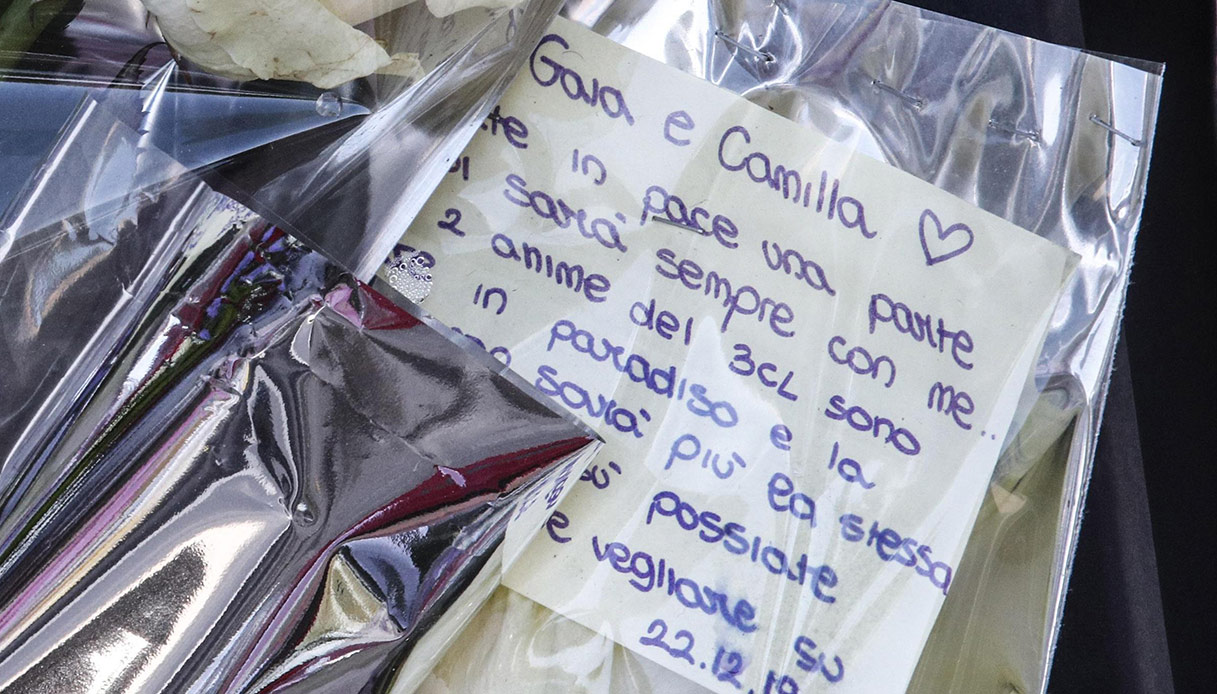 Gaia e Camilla ♡
in pace una parte
sarà sempre con me..
2 anime del 3cL sono
in paradiso e la
sarà più la stessa
possiate
e vegliare su
22.12.19